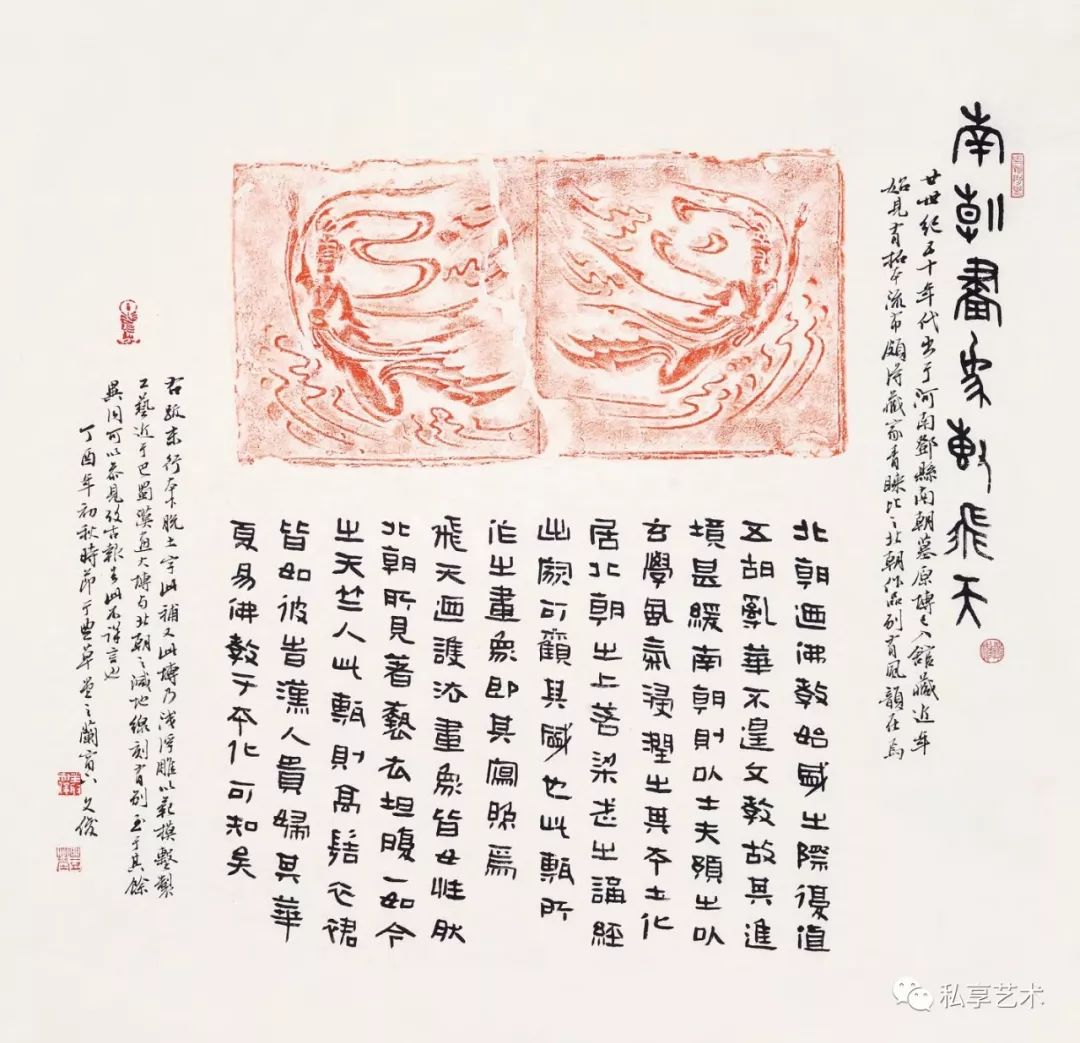 南朝畫象甎飛天
廿世紀五十年代出于河南鄧縣南朝墓原塼已入館藏近年
始見有拓本流布頗得藏家青睞比之北朝作品別有風韻在焉
北朝迺佛教始盛之際復值
五胡亂華不遑文教故其進
境甚緩南朝則以士夫預之以
玄學風氣浸潤之其本土化
居北朝之上若梁武之誦經
此廟可窺其盛也此甎所
作之畫象即其寫照焉
飛天迺護法畫象皆女性狀
北朝所見著艷衣坦腹一如今
之天竺人此甎則高髻衣裙
皆如彼者漢人貴婦其華
夏易佛教于本化可知矣
右跋末行本下脫土字此補又此塼乃淺浮雕以範模壓製
工藝近于巴蜀漢畫大塼與北朝之減地線刻有別至于其餘
異同可以參見考古報告此不詳言也
丁酉年初秋時節于豐草堂之蘭窗下 文俊
私享艺术